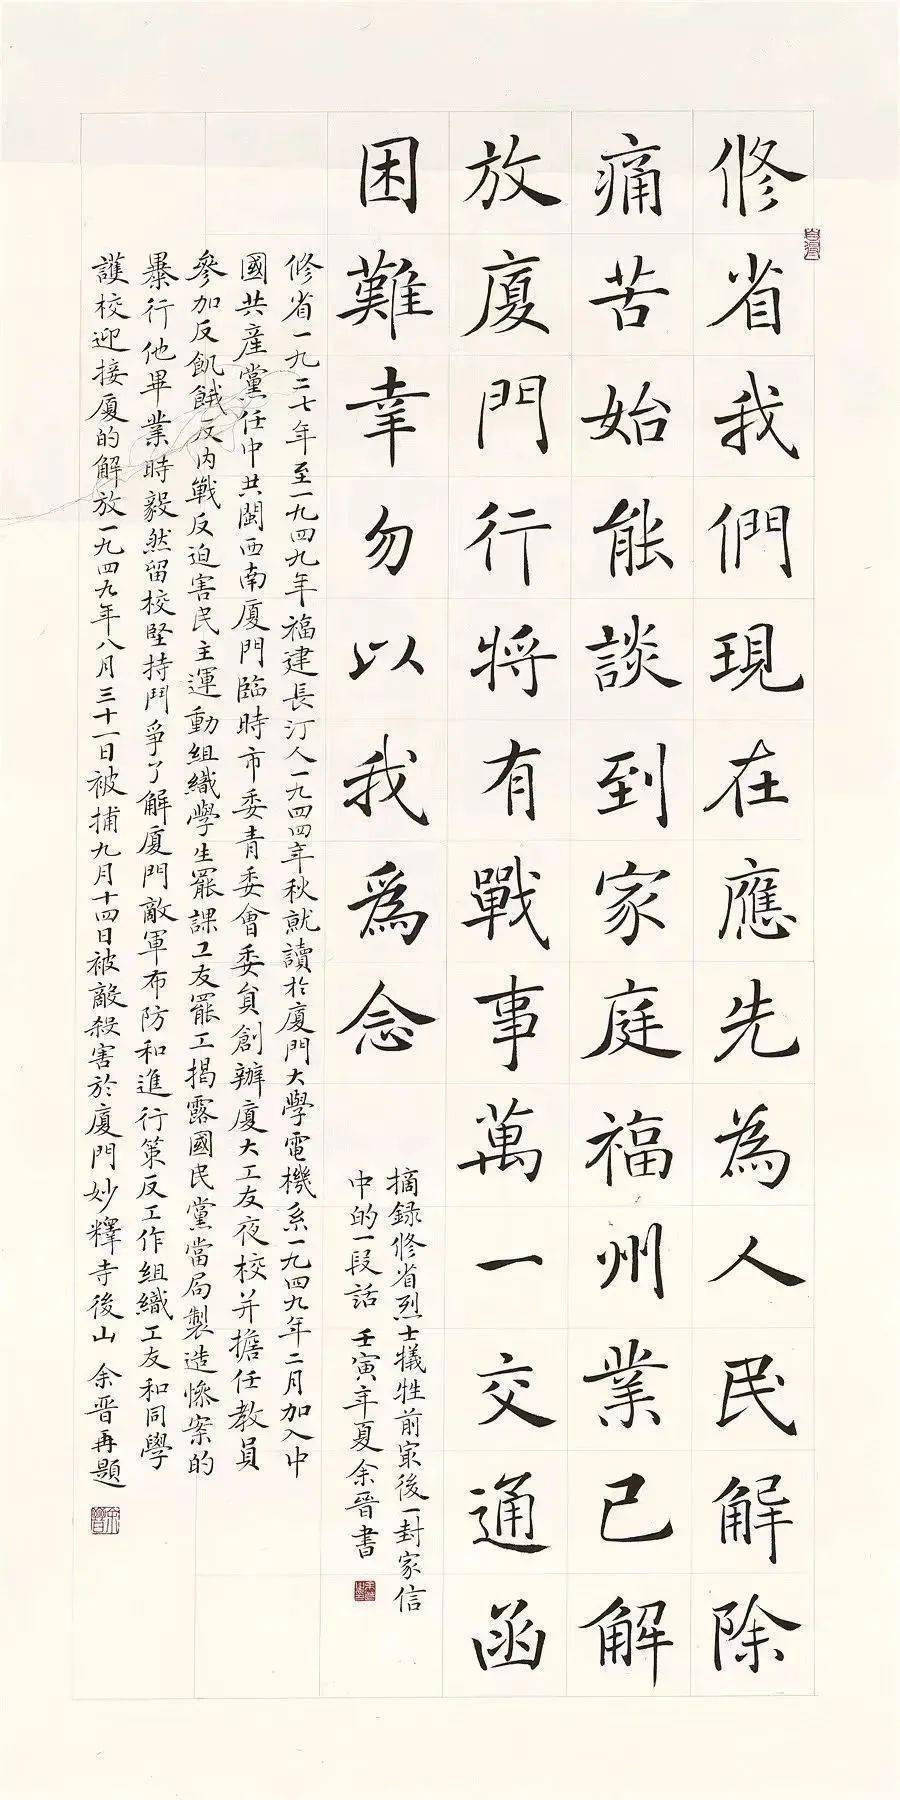 修省我們現在應先為人民解除
痛苦始能談到家庭福州業已解
放廈門行將有戰事萬一交通函
困難幸勿以我為念
摘録修省烈士犠牲前最後一封家信
中的一段話 壬寅年夏余晉書
修省一九二七年至一九四九年福建長汀人一九四四年秋就讀於廈門大學電機系一九四九年二月加入中
國共産黨任中共閩西南廈門臨時市委青委會委員創辦廈大工友夜校并擔任教員
參加反飢餓反内戰反迫害民主運動組織學生罷課工友罷工揭露國民黨當局製造慘案的
暴行他畢業時毅然留校堅持鬥爭了解廈門敵軍布防和進行策反工作組織工友和同學
護校迎接廈的解放一九四九年八月三十一日被捕九月十四日被敵殺害於廈門妙釋寺後山 余晉再題